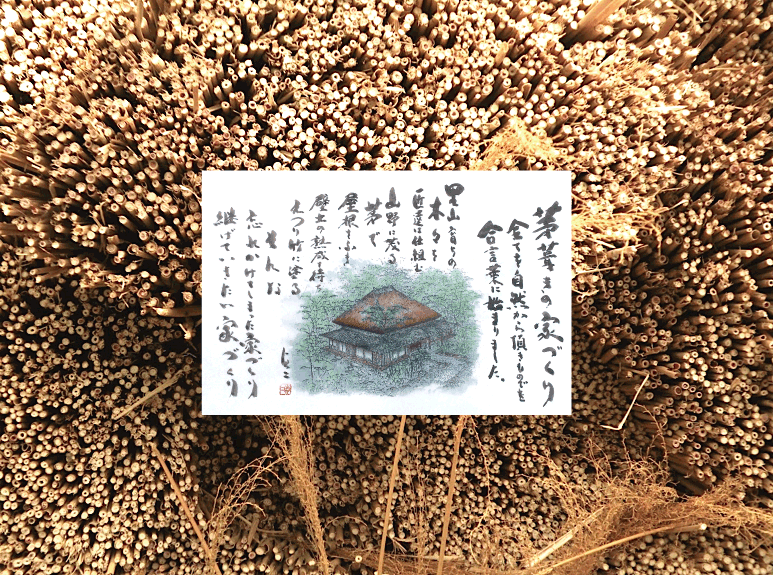 茅葺きの家づくり
全てを自然から頂きものでを
合言葉に始まりました。
里山育ちの
木々を
匠達は仕組む
山野に茂る
茅で
屋根をふき
壁土の熟成待ち
えつり竹に塗る
そんな
忘れかけてしまった家づくり
継げていきたい家づくり